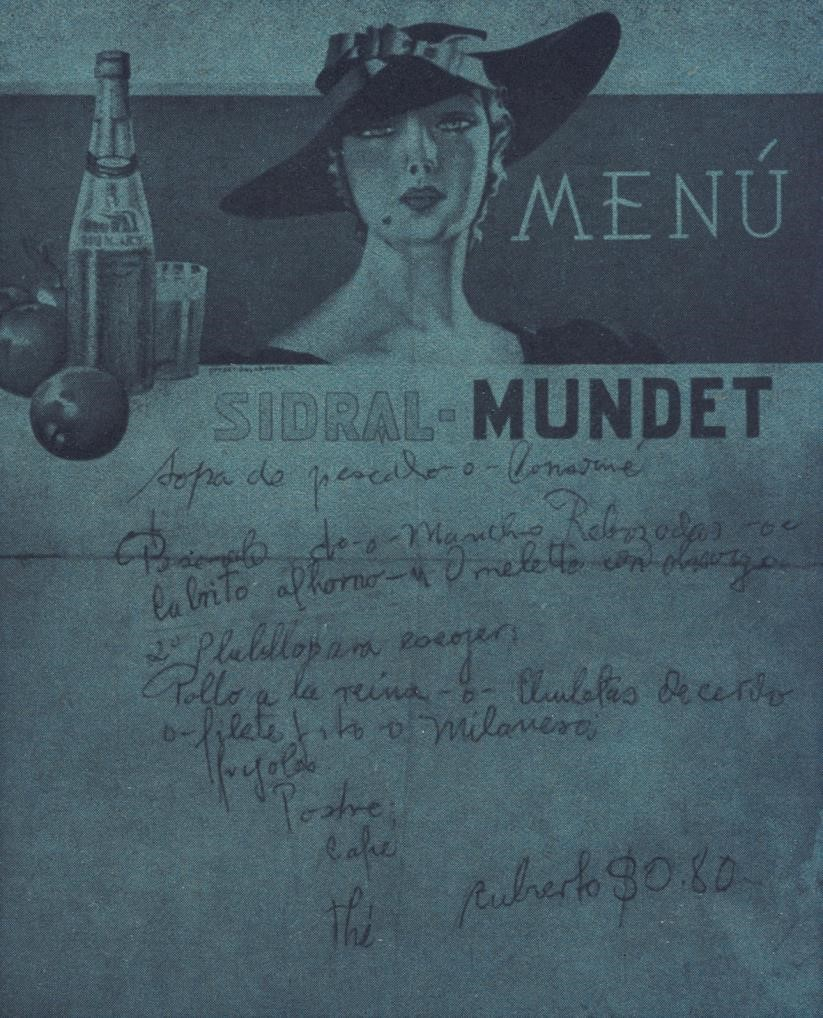 MENÚ
SIDRAL-MUNDET
Sopa de pescado - o - Consomé
Pescado - o - Mancho Rebozadas - o
Cabrito al horno - Omelette con
2º Platillo para escojer:
Pollo a la reina - o - Chuletas de cerdo
o - filete frito o Milanesa
frijoles
Postre;
Café
Thé
cubierto $0.80